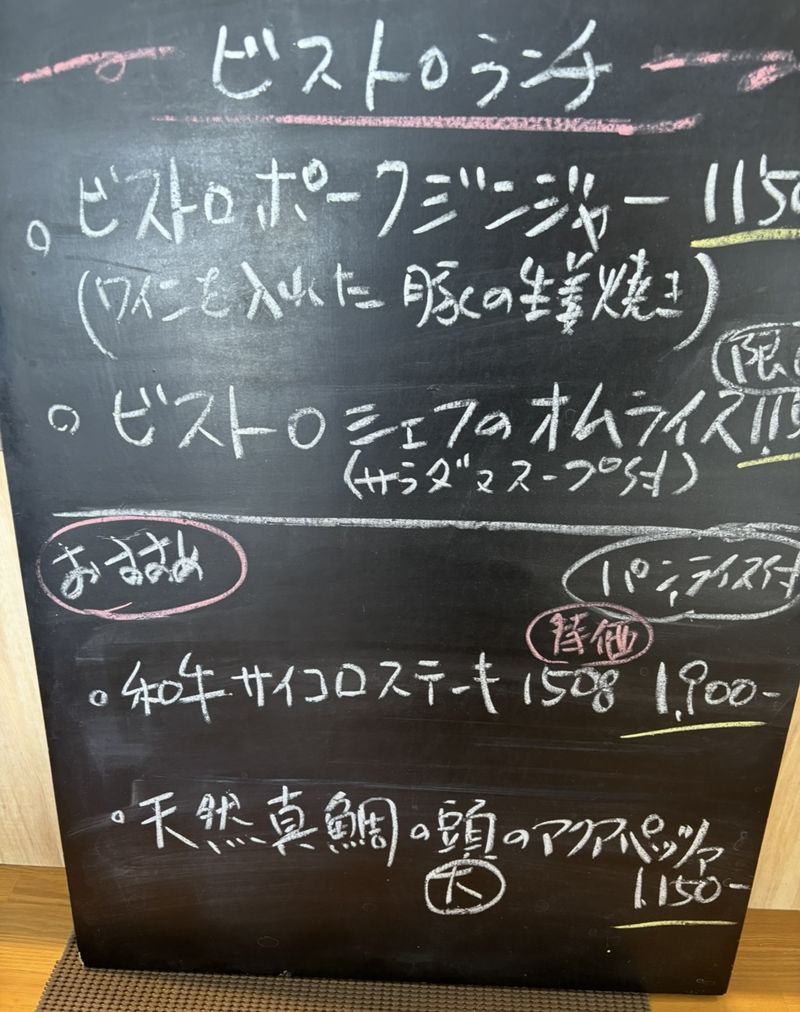 ビストロランチ
ビストロポークジンジャー 1150
(ワインを入れた豚の生姜焼き)
限
ビストロシェフのオムライス 115
(サラダorスープ付)
おすすめ
パン,ライス付
特価
和牛サイコロステーキ 150g 1,900-
天然真鯛の頭のアクアパッツァ
大 1,150-